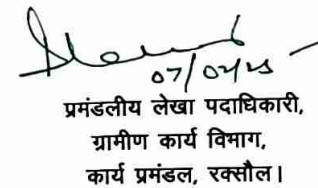 07/04/25
प्रमंडलीय लेखा पदाधिकारी,
ग्रामीण कार्य विभाग,
कार्य प्रमंडल, रक्सौल।